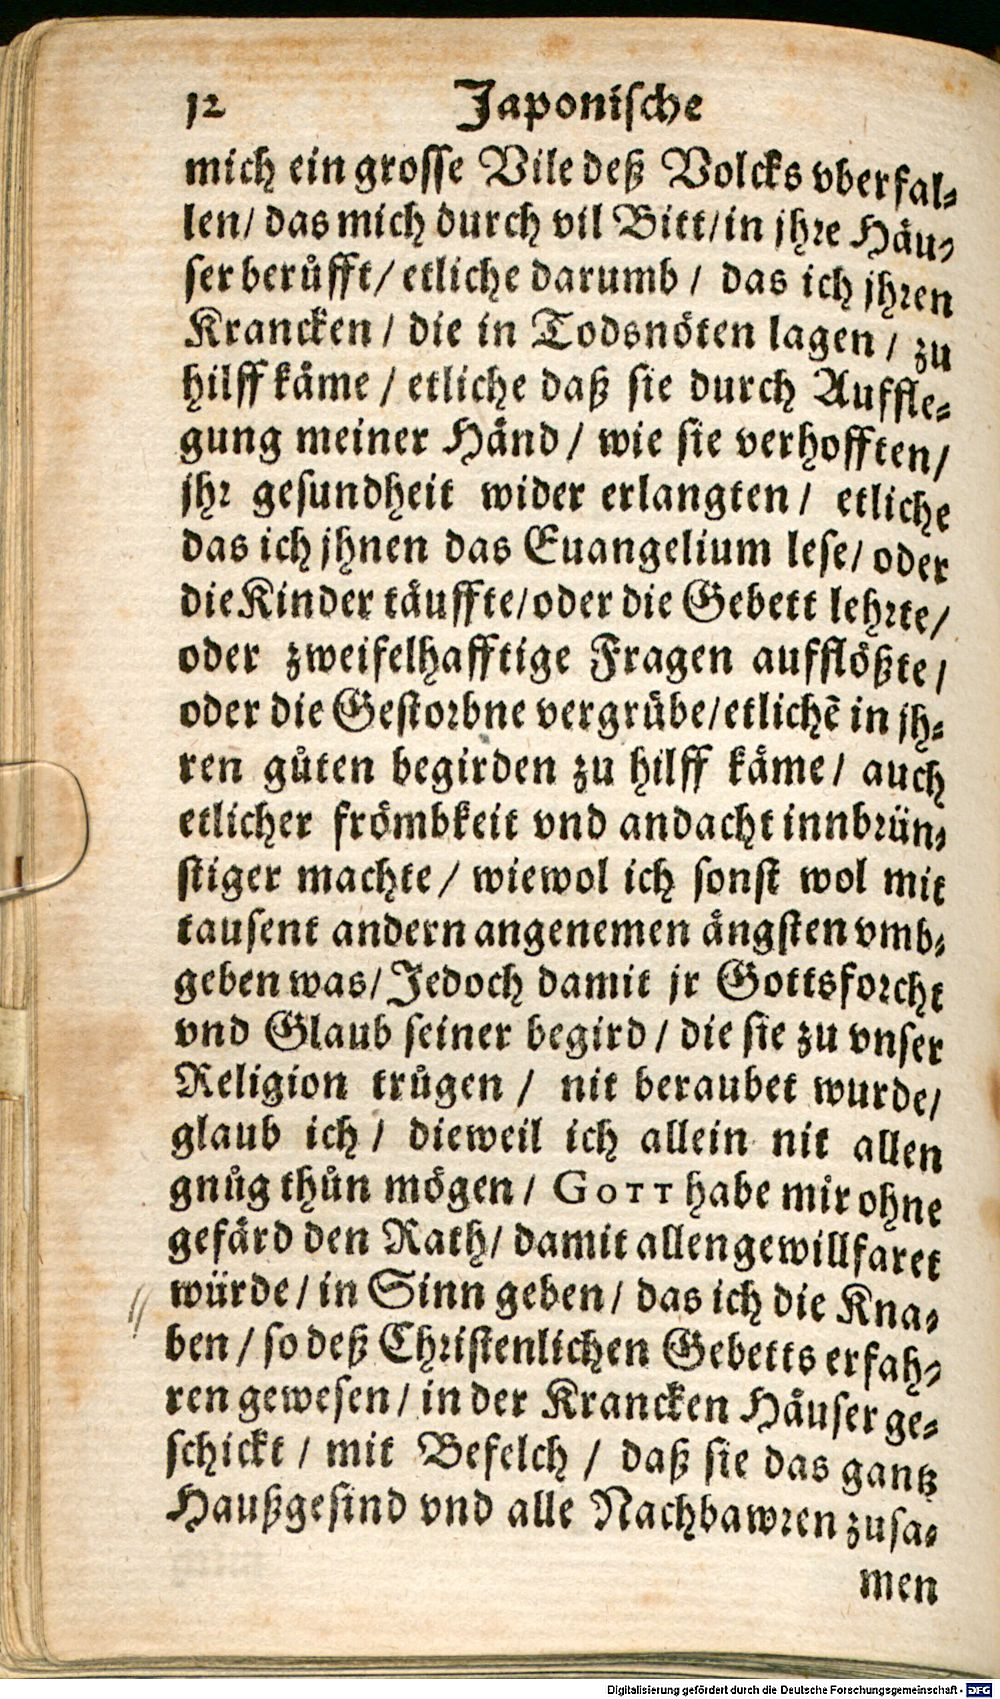 12 Japonische
mich ein grosse Vile deß Volcks vberfal-
len/ das mich durch vil Bitt/in jhre Häu-
ser berůfft/ etliche darumb / das ich jhren
Krancken / die in Todsnöten lagen / zu
hilff käme / etliche daß sie durch Auffle-
gung meiner Händ / wie sie verhofften/
jhr gesundheit wider erlangten / etliche
das ich jhnen das Euangelium lese/ oder
die Kinder täuffte/oder die Gebett lehrte/
oder zweifelhafftige Fragen aufflößte/
oder die Gestorbne vergrübe/etlichẽ in jh-
ren gůten begirden zu hilff käme/ auch
etlicher frömbkeit vnd andacht innbrün-
stiger machte / wiewol ich sonst wol mit
tausent andern angenemen ängsten vmb-
geben was/ Jedoch damit jr Gottsforcht
vnd Glaub seiner begird / die sie zu vnser
Religion trůgen / nit beraubet wurde/
glaub ich / dieweil ich allein nit allen
gnůg thůn mögen / GOTT habe mir ohne
gefärd den Rath/ damit allen gewillfaret
würde / in Sinn geben / das ich die Kna-
ben / so deß Christenlichen Gebetts erfah-
ren gewesen / in der Krancken Häuser ge-
schickt / mit Befelch / daß sie das gantz
Haußgesind vnd alle Nachbawren zusa-
men
Digitalisierung gefördert durch die Deutsche Forschungsgemeinschaft - DFG